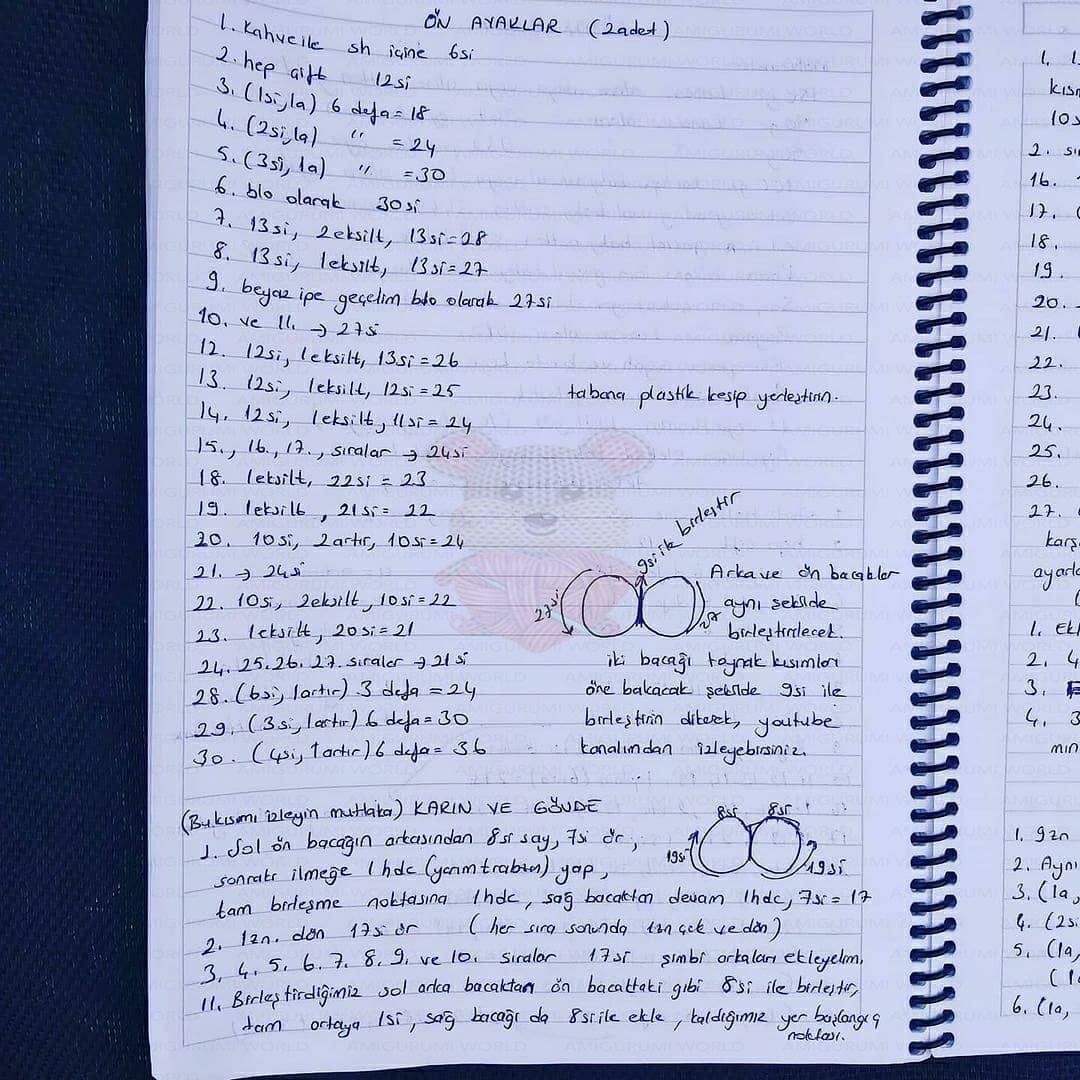 ÖN AYAKLAR (2adet)
1. Kahve ile sh içine 6si
2. hep çift 12si
3. (1si, 1a) 6 defa = 18
4. (2si, 1a) " = 24
5. (3si, 1a) " = 30
6. blo olarak 30si
7. 13si, 2eksilt, 13si = 28
8. 13si, 1eksilt, 13si = 27
9. beyaz ipe geçelim blo olarak 27si
10. ve 11. → 27si
12. 12si, 1eksilt, 13si = 26
13. 12si, 1eksilt, 12si = 25
tabana plastik kesip yerleştirin.
14. 12si, 1eksilt, 11si = 24
15., 16., 17., sıralar → 24si
18. 1eksilt, 22si = 23
19. 1eksilt, 21si = 22
20. 10si, 2artır, 10si = 24
21. → 24si
22. 10si, 2eksilt, 10si = 22
23. 1eksilt, 20si = 21
24. 25. 26. 27. sıralar → 21si
28. (6si, 1artır) 3 defa = 24
29. (3si, 1artır) 6 defa = 30
30. (4si, 1artır) 6 defa = 36
9si ile birleştir
27si
27
Arka ve ön bacaklar
aynı şekilde
birleştirilecek.
iki bacağı kaynak kısımları
öne bakacak şekilde 9si ile
birleştirin dikerek, youtube
kanalımdan izleyebirsiniz.
(Bu kısmı izleyin mutlaka) KARIN VE GÖVDE
8si 8si
19si 19si
1. Sol ön bacağın arkasından 8si say, 7si ör,
sonraki ilmeğe 1hdc (yarım trabzan) yap,
tam birleşme noktasına 1hdc, sağ bacaktan devam 1hdc, 7si = 17
2. 1zn. dön 17si ör (her sıra sonunda 1zn çek ve dön)
3, 4. 5. 6. 7. 8. 9. ve 10. sıralar 17si şimdi arkaları ekleyelim.
11. Birleştirdiğimiz sol arka bacaktan ön bacaktaki gibi 8si ile birleştir,
tam ortaya 1si, sağ bacağı da 8si ile ekle, kaldığımız yer başlangıç
noktası.
1.
kısm
10s
2. sı
16.
17. (
18.
19.
20.
21.
22.
23.
24.
25.
26.
27.
karş
ayarla
1. Ekl
2. 4
3.
4. 3
min
1. 9zn
2. Aynı
3. (1a,
4. (2s
5. (1a,
6. (1a,
AMIGURUMI WORLD